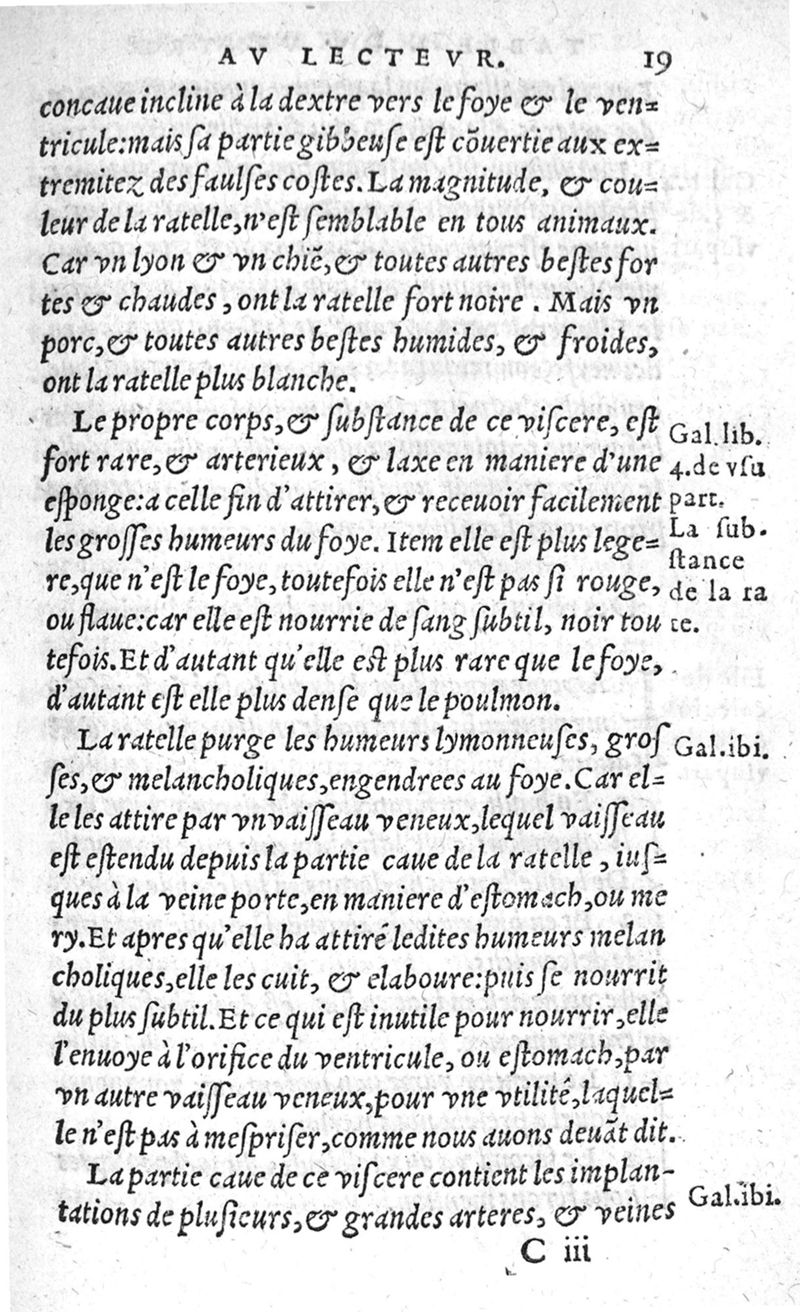 AV LECTEVR. 19
concaue incline à la dextre vers le foye & le ven=
tricule: mais sa partie gibbeuse est cõuertie aux ex=
tremitez des faulses costes. La magnitude, & cou=
leur de la ratelle, n'est semblable en tous animaux.
Car vn lyon & vn chiẽ, & toutes autres bestes for
tes & chaudes, ont la ratelle fort noire. Mais vn
porc, & toutes autres bestes humides, & froides,
ont la ratelle plus blanche.
Le propre corps, & substance de ce viscere, est
fort rare, & arterieux, & laxe en maniere d'une
esponge: a celle fin d'attirer, & receuoir facilement
les grosses humeurs du foye. Item elle est plus lege=
re, que n'est le foye, toutefois elle n'est pas si rouge,
ou flaue: car elle est nourrie de sang subtil, noir tou
tefois. Et d'autant qu'elle est plus rare que le foye,
d'autant est elle plus dense que le poulmon.
Gal. lib.
4. de vsu
part.
La sub.
stance
de la ra
te.
La ratelle purge les humeurs lymonneuses, gros
ses, & melancholiques, engendrees au foye. Car el=
le les attire par vn vaisseau veneux, lequel vaisseau
est estendu depuis la partie caue de la ratelle, ius=
ques à la veine porte, en maniere d'estomach, ou me
ry. Et apres qu'elle ha attiré ledites humeurs melan
choliques, elle les cuit, & elaboure: puis se nourrit
du plus subtil. Et ce qui est inutile pour nourrir, elle
l'enuoye à l'orifice du ventricule, ou estomach, par
vn autre vaisseau veneux, pour vne vtilité, laquel=
le n'est pas à mespriser, comme nous auons deuãt dit.
Gal. ibi.
La partie caue de ce viscere contient les implan-
tations de plusieurs, & grandes arteres, & veines
Gal. ibi.
C iii